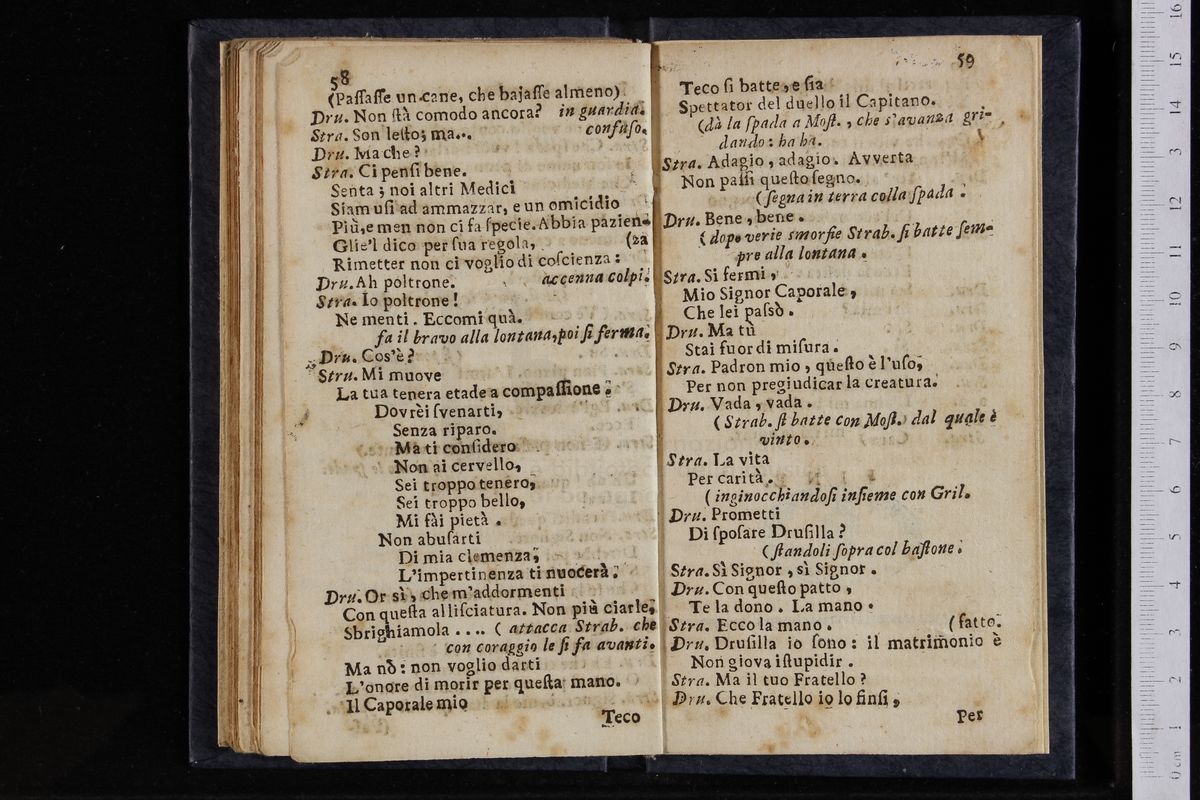 58
(Paſſaſſe un cane, che bajaſſe almeno)
Dru. Non ſtà comodo ancora? in guardia.
Stra. Son leſto; ma... confuſo.
Dru. Ma che?
Stra. Ci penſi bene.
Senta; noi altri Medici
Siam uſi ad ammazzar, e un omicidio
Più, e men non ci fa ſpecie. Abbia pazien-
Glie'l dico per ſua regola, (za
Rimetter non ci voglio di coſcienza:
Dru. Ah poltrone. accenna colpi.
Stra. Io poltrone!
Ne menti. Eccomi quà.
fa il bravo alla lontana, poi ſi ferma.
Dru. Cos'è?
Stra. Mi muove
La tua tenera etade a compaſſione.
Dovrèi ſvenarti,
Senza riparo.
Ma ti conſidero
Non ai cervello,
Sei troppo tenero,
Sei troppo bello,
Mi fài pietà.
Non abuſarti
Di mia clemenza,
L'impertinenza ti nuocerà.
Dru. Or sì, che m'addormenti
Con queſta alliſciatura. Non più ciarle,
Sbrighiamola .... ( attacca Strab. che
con coraggio le ſi fa avanti.
Ma nò: non voglio darti
L'onore di morir per queſta mano.
Il Caporale mio
Teco
59
Teco ſi batte, e ſia
Spettator del duello il Capitano.
(dà la ſpada a Moſt., che s'avanza gri-
dando: ha ha.
Stra. Adagio, adagio. Avverta
Non paſſi queſto ſegno.
(ſegna in terra colla ſpada.
Dru. Bene, bene.
(dopo verie smorfie Strab. ſi batte ſem-
pre alla lontana.
Stra. Si fermi,
Mio Signor Caporale,
Che lei paſsò.
Dru. Ma tù
Stai fuor di miſura.
Stra. Padron mio, queſto è l'uſo,
Per non pregiudicar la creatura.
Dru. Vada, vada.
(Strab. ſi batte con Moſt. dal quale è
vinto.
Stra. La vita
Per carità.
(inginocchiandoſi inſieme con Gril.
Dru. Prometti
Di ſpoſare Druſilla?
(ſtandoli ſopra col baſtone.
Stra. Sì Signor, sì Signor.
Dru. Con queſto patto,
Te la dono. La mano.
Stra. Ecco la mano. (fatto.
Dru. Druſilla io ſono: il matrimonio è
Non giova iſtupidir.
Stra. Ma il tuo Fratello?
Dru. Che Fratello io lo finſi,
Per
16
15
14
13
12
11
10
9
8
7
6
5
4
3
2
1
0 cm